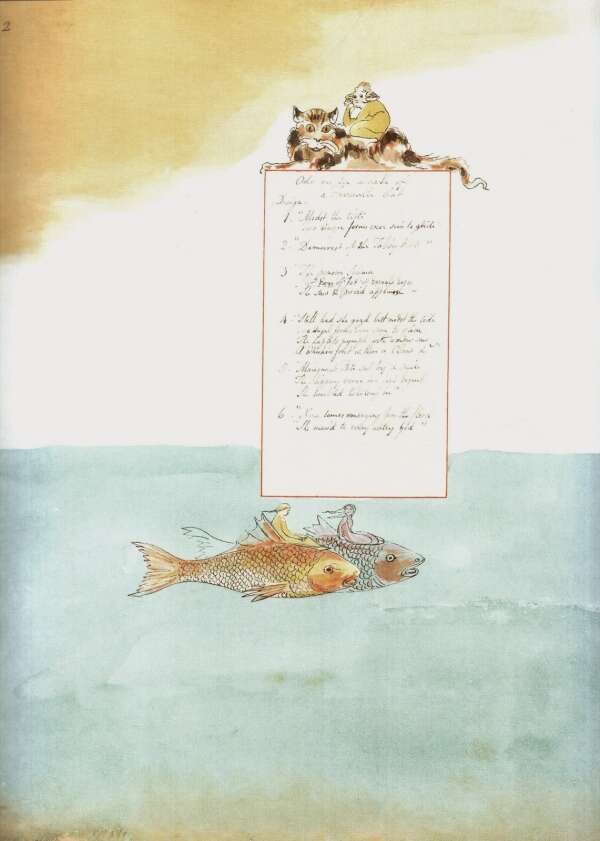 2
Ode on the Death of
a Favourite Cat
Design
1 "Midst the tide
Two Angel forms were seen to glide
2 "Demurest of the Tabby Kind"
3 "The pensive Selima
Her Ears of Jet & emrald Eyes
She saw & purr'd applause"
4 "Still had she gazd but midst the tide
Two Angel forms were seen to glide
The hapless nymph with wonder saw
A whisker first & then a Claw &c"
5 "Malignant Fate sat by & smild
The slippery verge her feet beguild
She tumbled headlong in"
6 "Nine times emerging from the flood
"She mewd to every watry God"